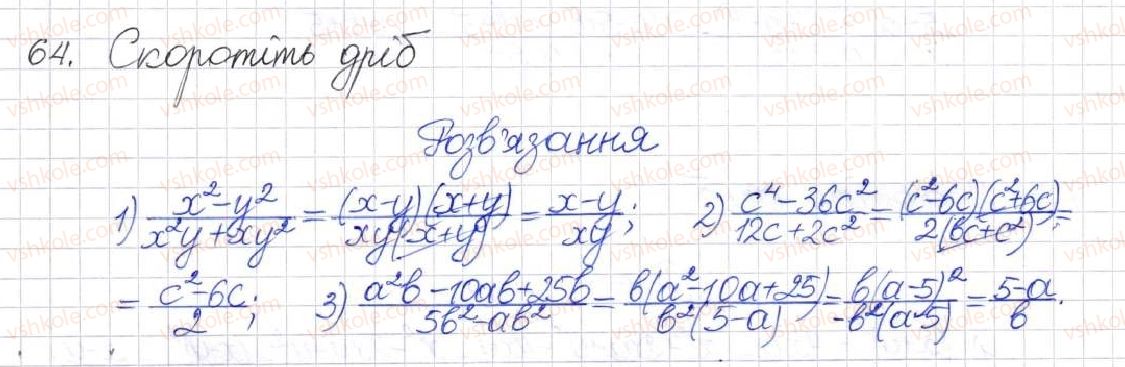 64. Скоротіть дріб
Розв'язання
1) (x² - y²)/(x²y + xy²) = ((x-y)(x+y))/(xy(x+y)) = (x-y)/(xy); 2) (c⁴ - 36c²)/(12c + 2c²) = ((c²-6c)(c²+6c))/(2(6c+c²)) =
= (c² - 6c)/2; 3) (a²b - 10ab + 25b)/(5b² - ab²) = (b(a² - 10a + 25))/(b²(5-a)) = (b(a-5)²)/(-b²(a-5)) = (5-a)/b.